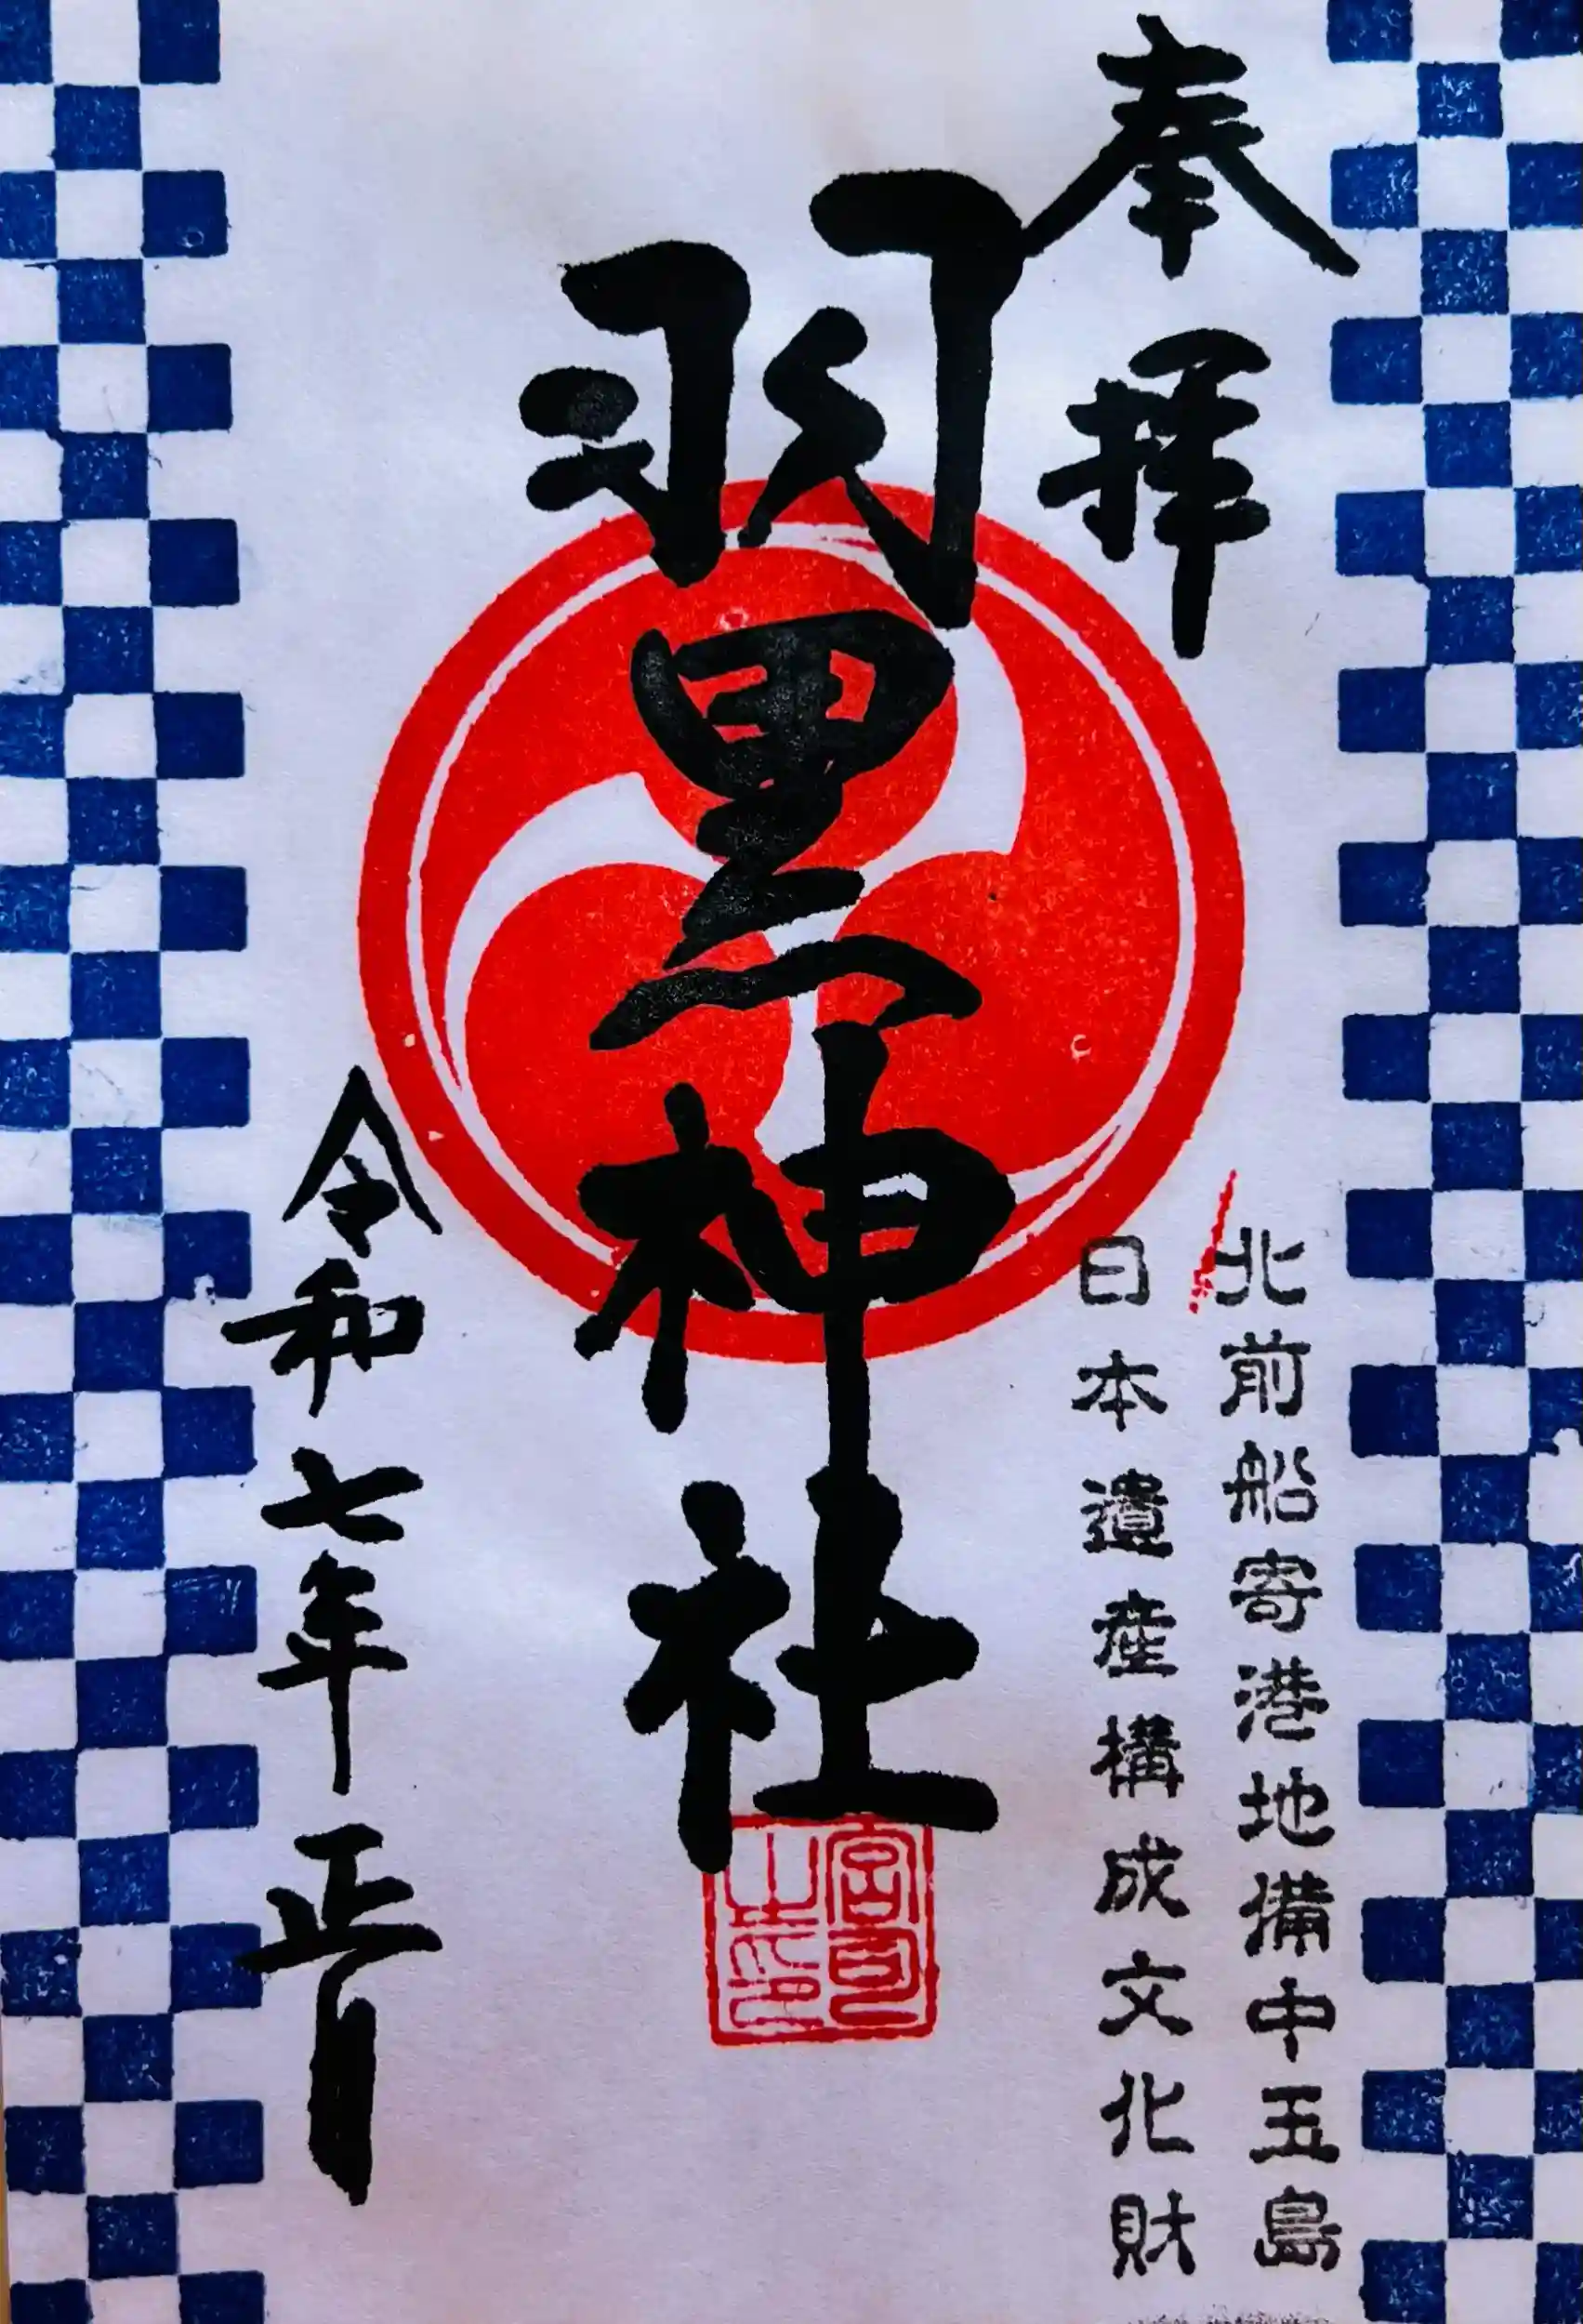 奉拝
北前船寄港地備中玉島
日本遺産構成文化財
羽黒神社
宮司之印
令和七年正月